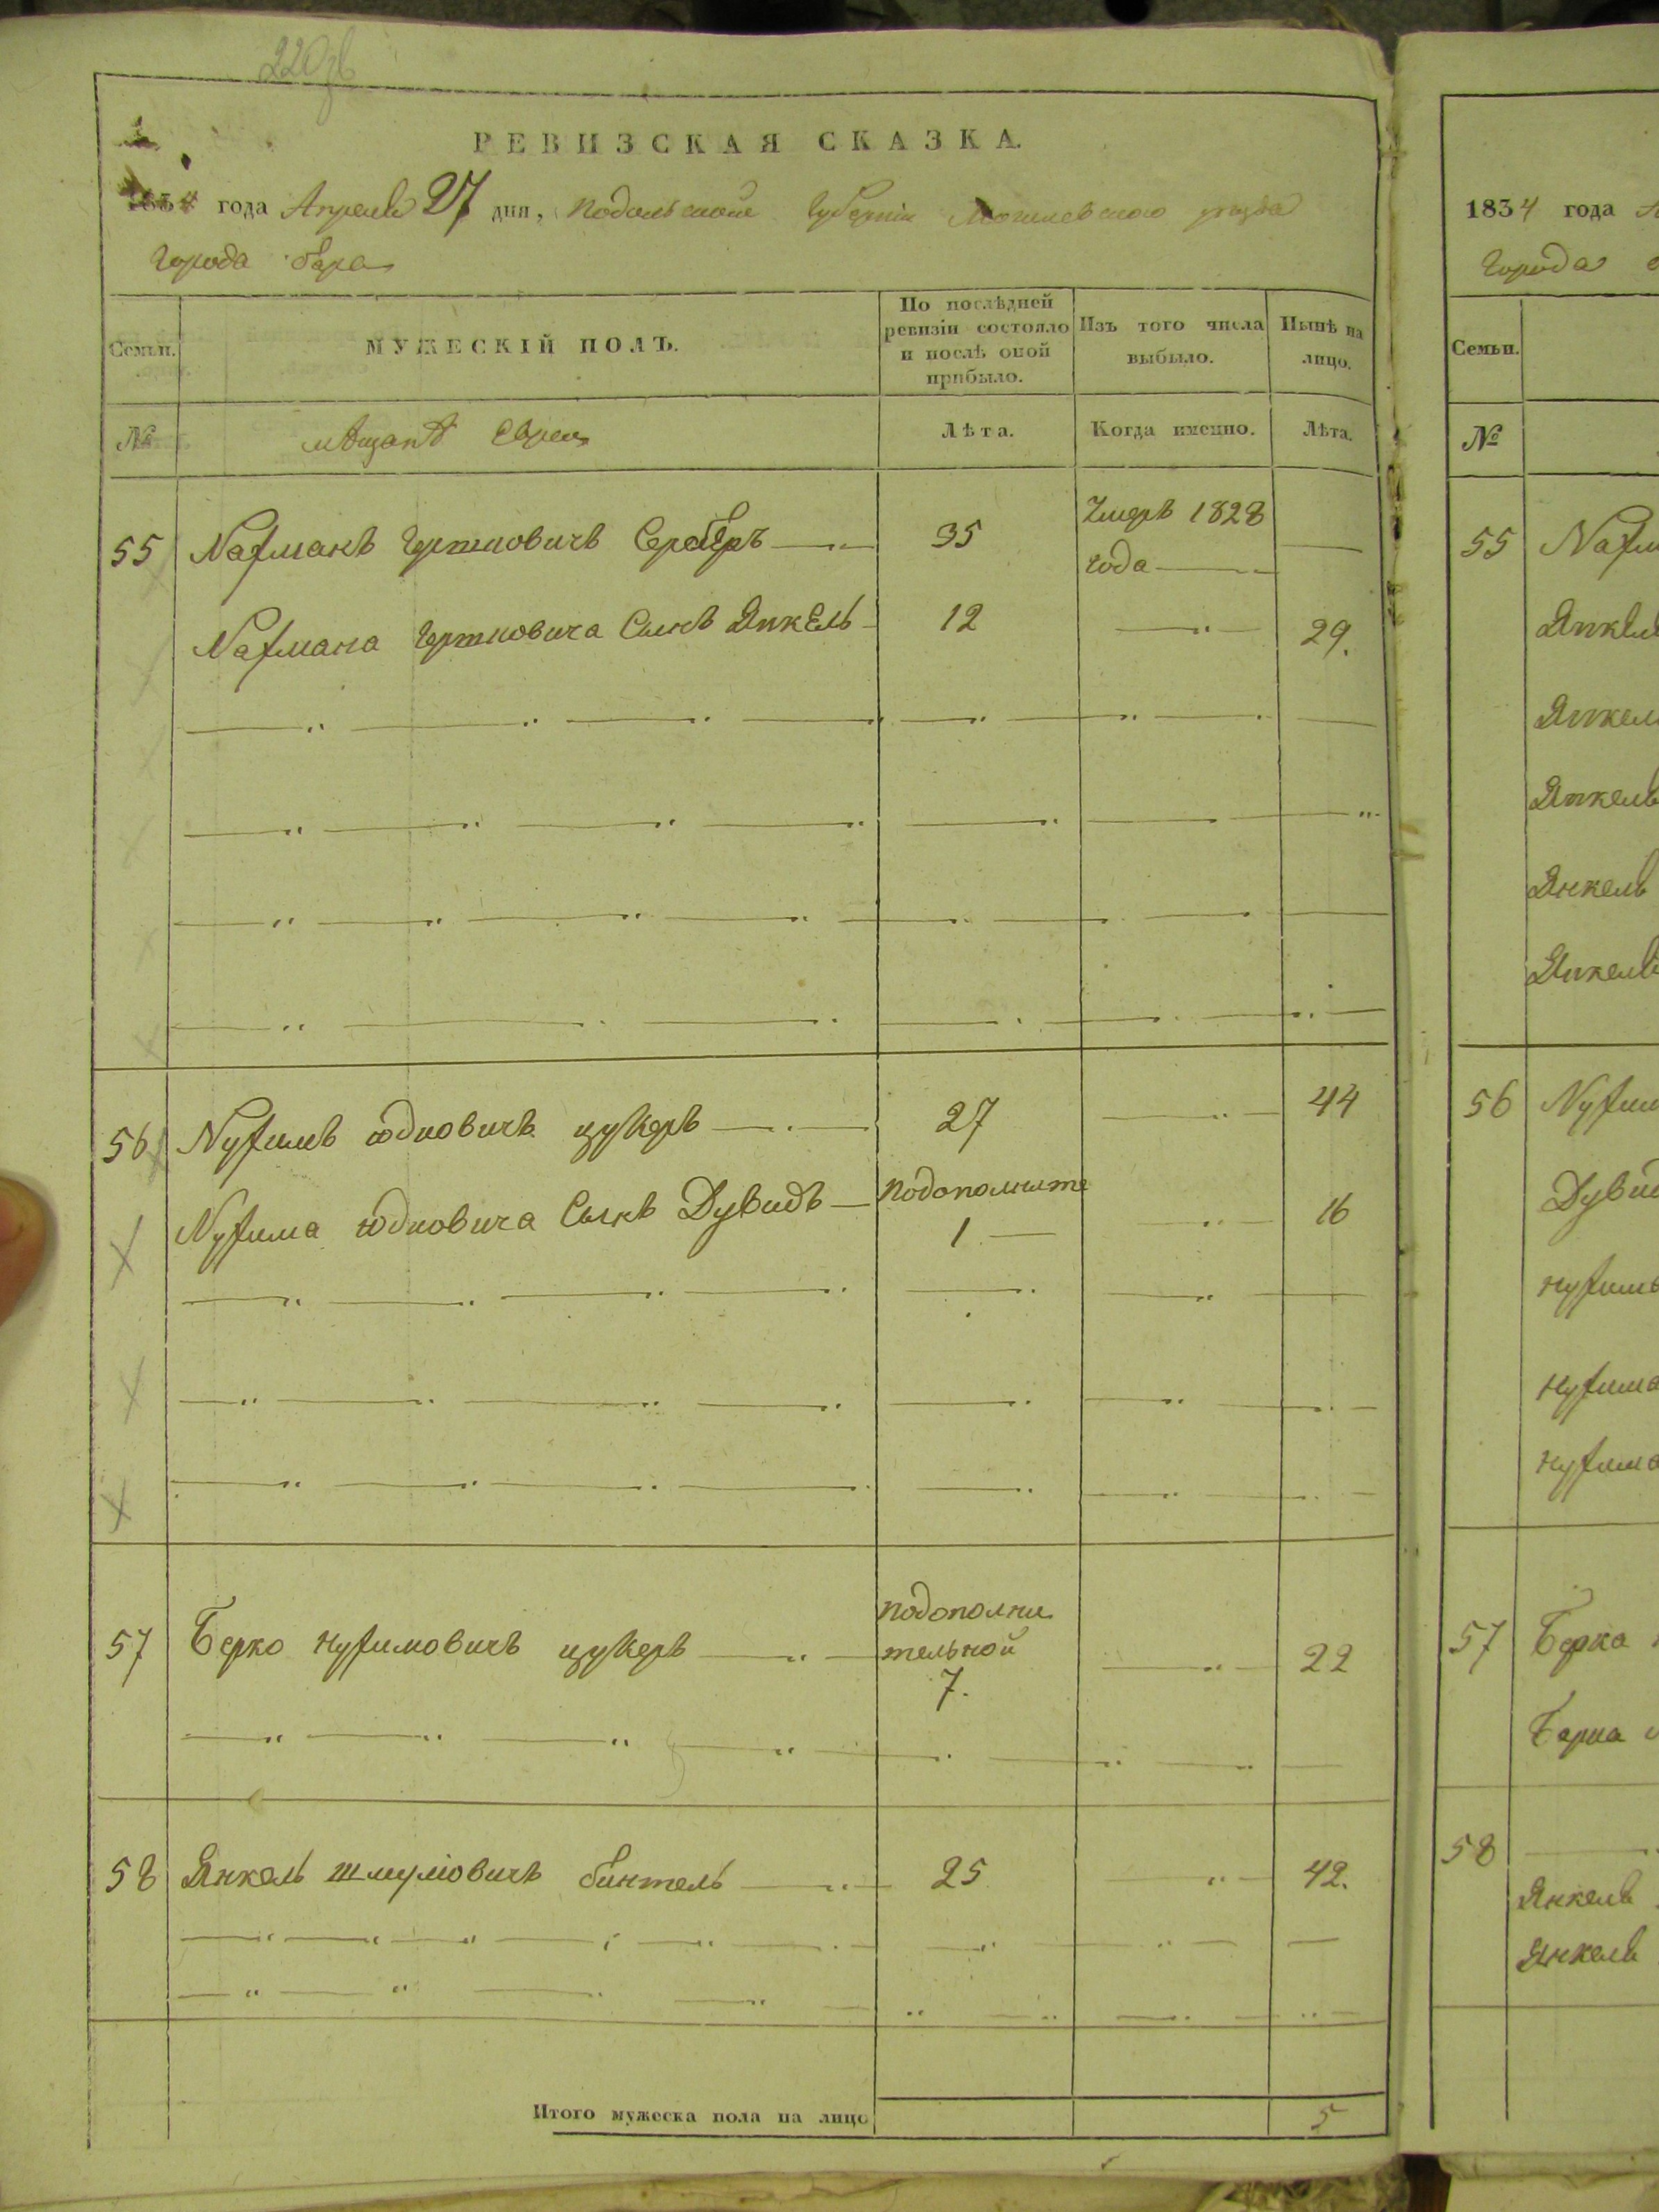 220об
РЕВИЗСКАЯ СКАЗКА.
1834 года Апреля 27 дня, Подольской Губерніи Могилевского уезда
Города бара
Семьи.
МУЖЕСКІЙ ПОЛЪ.
По послѣдней ревизіи состояло и послѣ оной прибыло.
Изъ того числа выбыло.
Нынѣ на лицо.
№
мѣщанѣ Евреи
Лѣта.
Когда именно.
Лѣта.
55 Нахманъ Гершковичъ 35 Умеръ 1828 года
Нахмана Гершковича Сынъ Янкель 12 29.
56 Нухимъ юдковичъ цукеръ 27 44
Нухима юдковича Сынъ Дувидъ подополните 1 16
57 Берко нухимовичъ цукеръ подополни
тельной
7. 22
58 Янкель шмуліовичъ бинтель 25 42.
Итого мужеска пола на лицо 5
1834 года
Города
Семьи.
№
55
Янкель
Янкель
Янкель
56
57 Берка
Берка
58
Янкеля
Янкеля